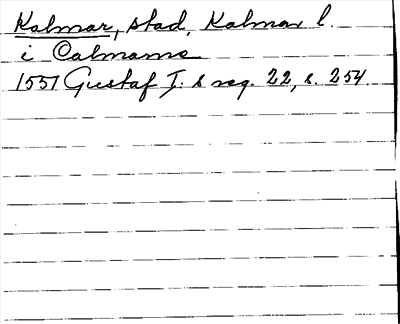 Kalmar, stad, Kalmar l.
i Calmarne
1551 Gustaf I:s reg. 22, s. 254